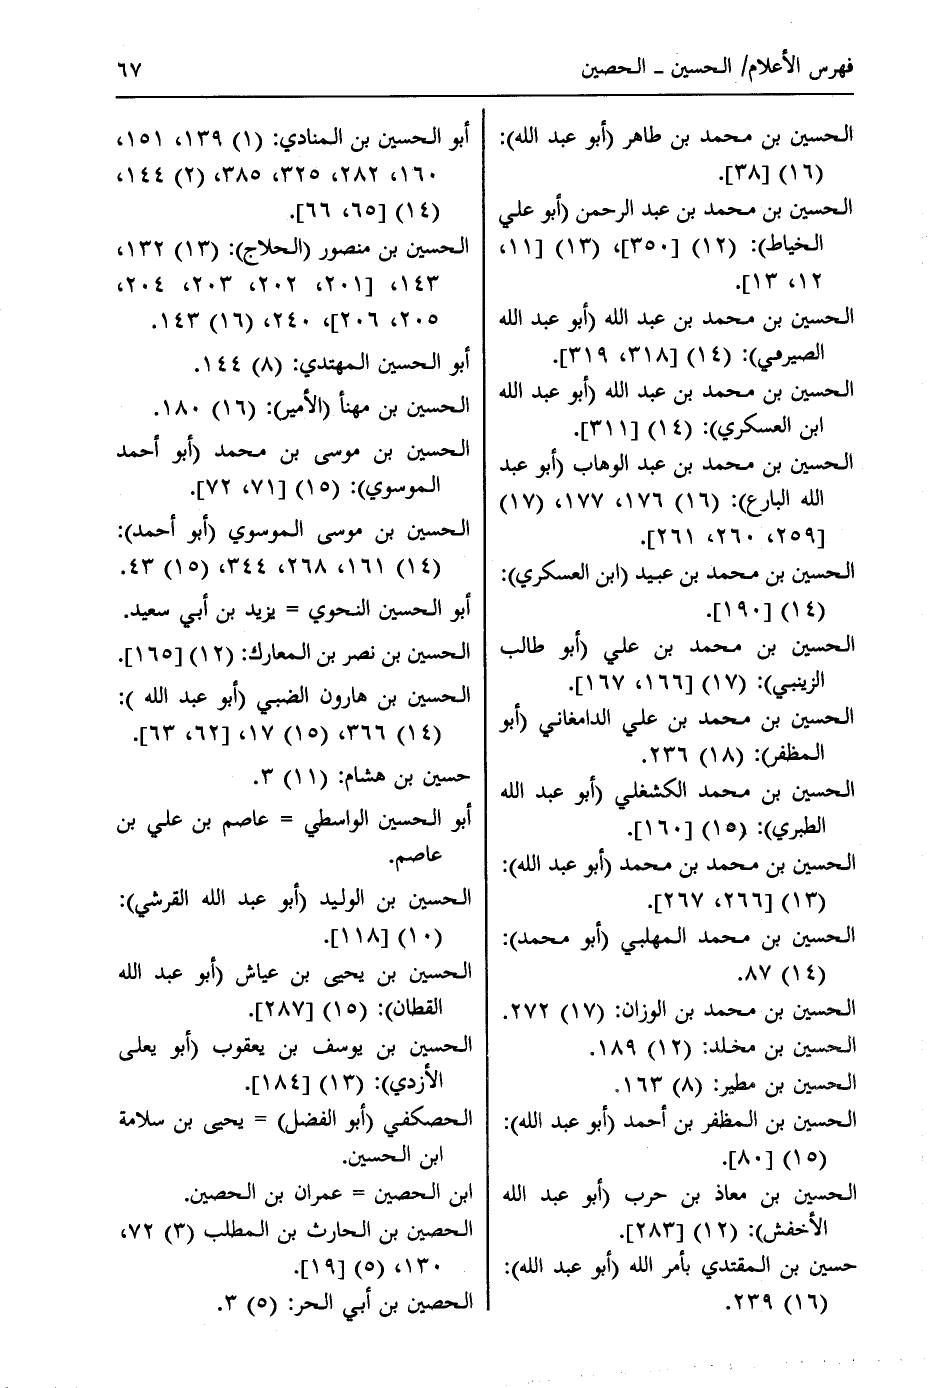 فهرس الأعلام/ الحسين ـ الحصين
٦٧
الحسين بن محمد بن طاهر (أبو عبد الله):
(١٦) [٣٨].
الحسين بن محمد بن عبد الرحمن (أبو علي
الخياط): (١٢) [٣٥٠]، (١٣) [١١،
١٢، ١٣].
الحسين بن محمد بن عبد الله (أبو عبد الله
الصيرفي): (١٤) [٣١٨، ٣١٩].
الحسين بن محمد بن عبد الله (أبو عبد الله
ابن العسكري): (١٤) [٣١١].
الحسين بن محمد بن عبد الوهاب (أبو عبد
الله البارع): (١٦) ١٧٦، ١٧٧، (١٧)
[٢٥٩، ٢٦٠، ٢٦١].
الحسين بن محمد بن عبيد (ابن العسكري):
(١٤) [١٩٠].
الحسين بن محمد بن علي (أبو طالب
الزينبي): (١٧) [١٦٦، ١٦٧].
الحسين بن محمد بن علي الدامغاني (أبو
المظفر): (١٨) ٢٣٦.
الحسين بن محمد الكشفلي (أبو عبد الله
الطبري): (١٥) [١٦٠].
الحسين بن محمد بن محمد (أبو عبد الله):
(١٣) [٢٦٦، ٢٦٧].
الحسين بن محمد المهلبي (أبو محمد):
(١٤) ٨٧.
الحسين بن محمد بن الوزان: (١٧) ٢٧٢.
الحسين بن مخلد: (١٢) ١٨٩.
الحسين بن مطير: (٨) ١٦٣.
الحسين بن المظفر بن أحمد (أبو عبد الله):
(١٥) [٨٠].
الحسين بن معاذ بن حرب (أبو عبد الله
الأخفش): (١٢) [٢٨٣].
حسين بن المقتدي بأمر الله (أبو عبد الله):
(١٦) ٢٣٩.
أبو الحسين بن المنادي: (١) ١٣٩، ١٥١،
١٦٠، ٢٨٢، ٣٢٥، ٣٨٥، (٢) ١٤٤،
(١٤) [٦٥، ٦٦].
الحسين بن منصور (الحلاج): (١٣) ١٣٢،
١٤٣، [٢٠١، ٢٠٢، ٢٠٣، ٢٠٤،
٢٠٥، ٢٠٦]، ٢٤٠، (١٦) ١٤٣.
أبو الحسين المهتدي: (٨) ١٤٤.
الحسين بن مهنأ (الأمير): (١٦) ١٨٠.
الحسين بن موسى بن محمد (أبو أحمد
الموسوي): (١٥) [٧١، ٧٢].
الحسين بن موسى الموسوي (أبو أحمد):
(١٤) ١٦١، ٢٦٨، ٣٤٤، (١٥) ٤٣.
أبو الحسين النحوي = يزيد بن أبي سعيد.
الحسين بن نصر بن المعارك: (١٢) [١٦٥].
الحسين بن هارون الضبي (أبو عبد الله ):
(١٤) ٣٦٦، (١٥) ١٧، [٦٢، ٦٣].
حسين بن هشام: (١١) ٣.
أبو الحسين الواسطي = عاصم بن علي بن
عاصم.
الحسين بن الوليد (أبو عبد الله القرشي):
(١٠) [١١٨].
الحسين بن يحيى بن عياش (أبو عبد الله
القطان): (١٥) [٢٨٧].
الحسين بن يوسف بن يعقوب (أبو يعلى
الأزدي): (١٣) [١٨٤].
الحصكفي (أبو الفضل) = يحيى بن سلامة
ابن الحسين.
ابن الحصين = عمران بن الحصين.
الحصين بن الحارث بن المطلب (٣) ٧٢،
١٣٠، (٥) [١٩].
الحصين بن أبي الحر: (٥) ٣.